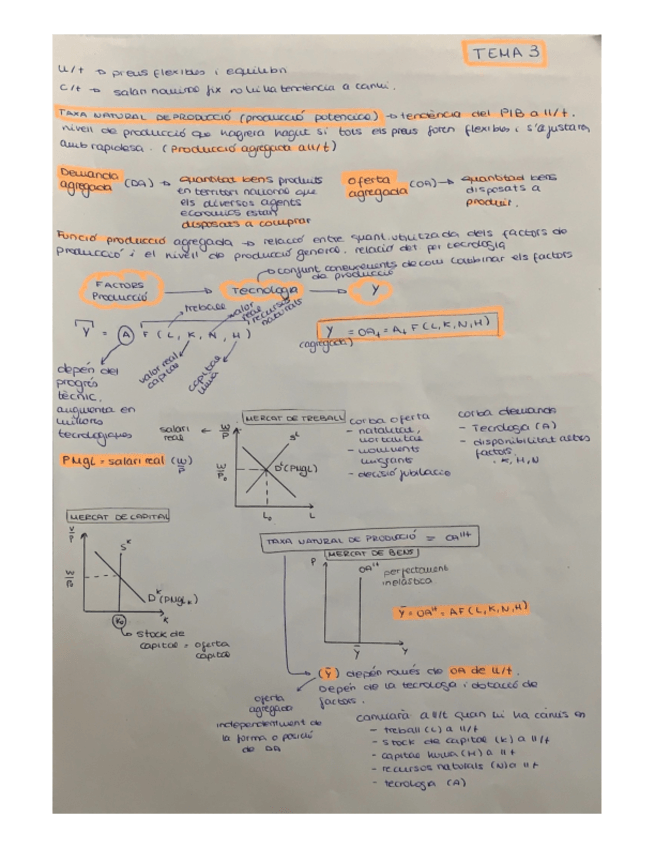 TEMA 3
ll/t → preus flexibles i equilibri
c/t → salari nominal fix no hi ha tendència a canvi.
TAXA NATURAL DE PRODUCCIÓ (producció potencial) → tendència del PIB a ll/t.
nivell de producció que hagués hagut si tots els preus foren flexibles i s'ajustaren
amb rapidesa. (Producció agregada a ll/t)
Demanda agregada (DA) → quantitat bens produits
en territori nacional que
els diversos agents
economics estan
disposats a comprar
oferta agregada (OA) → quantitad bens
disposats a
produir.
Funció producció agregada → relació entre quant. utilitzada dels factors de
producció i el nivell de producció general. relació det per tecnologia
conjunt coneixements de com combinar els factors
de producció
FACTORS Producció → Tecnologia → Y
treball
valor real recursos naturals
Y = A F (L, K, N, H)
valor real capital
capital humà
Y = OA₁ = A, F (L, K, N, H)
(agregada)
depén del
progrés
tècnic,
augmenta en
millores
tecnologiques
PMgL = salari real (W/P)
salari real ← W/P
MERCAT DE TREBALL
Sᴸ
Dᴸ (PMgL)
W/P₀
L₀ L
corba oferta
- natalitat,
mortalitat
- moviments
migrants
- decisió jubilacio
corba demanda
- Tecnologia (A)
- disponibilitat altres
factors.
. K, H, N
MERCAT DE CAPITAL
Sᴷ
Dᴷ (PMgLₖ)
K₀ K
stock de
capital = oferta
capital
TAXA NATURAL DE PRODUCCIÓ = OA ll/t
MERCAT DE BENS
P
OA ll/t perfectament
inelàstica
Ȳ Y
Ȳ = OA ll/t = A F (L, K, N, H)
(Ȳ) depén només de OA de ll/t.
Depén de la tecnologia i dotació de
factors.
oferta
agregada
independentment de
la forma o posició
de DA
canviarà a ll/t quan hi ha canvis en
- treball (L) a ll/t
- stock de capital (K) a ll/t
- capital humà (H) a ll/t
- recursos naturals (N) a ll/t
- tecnologia (A)